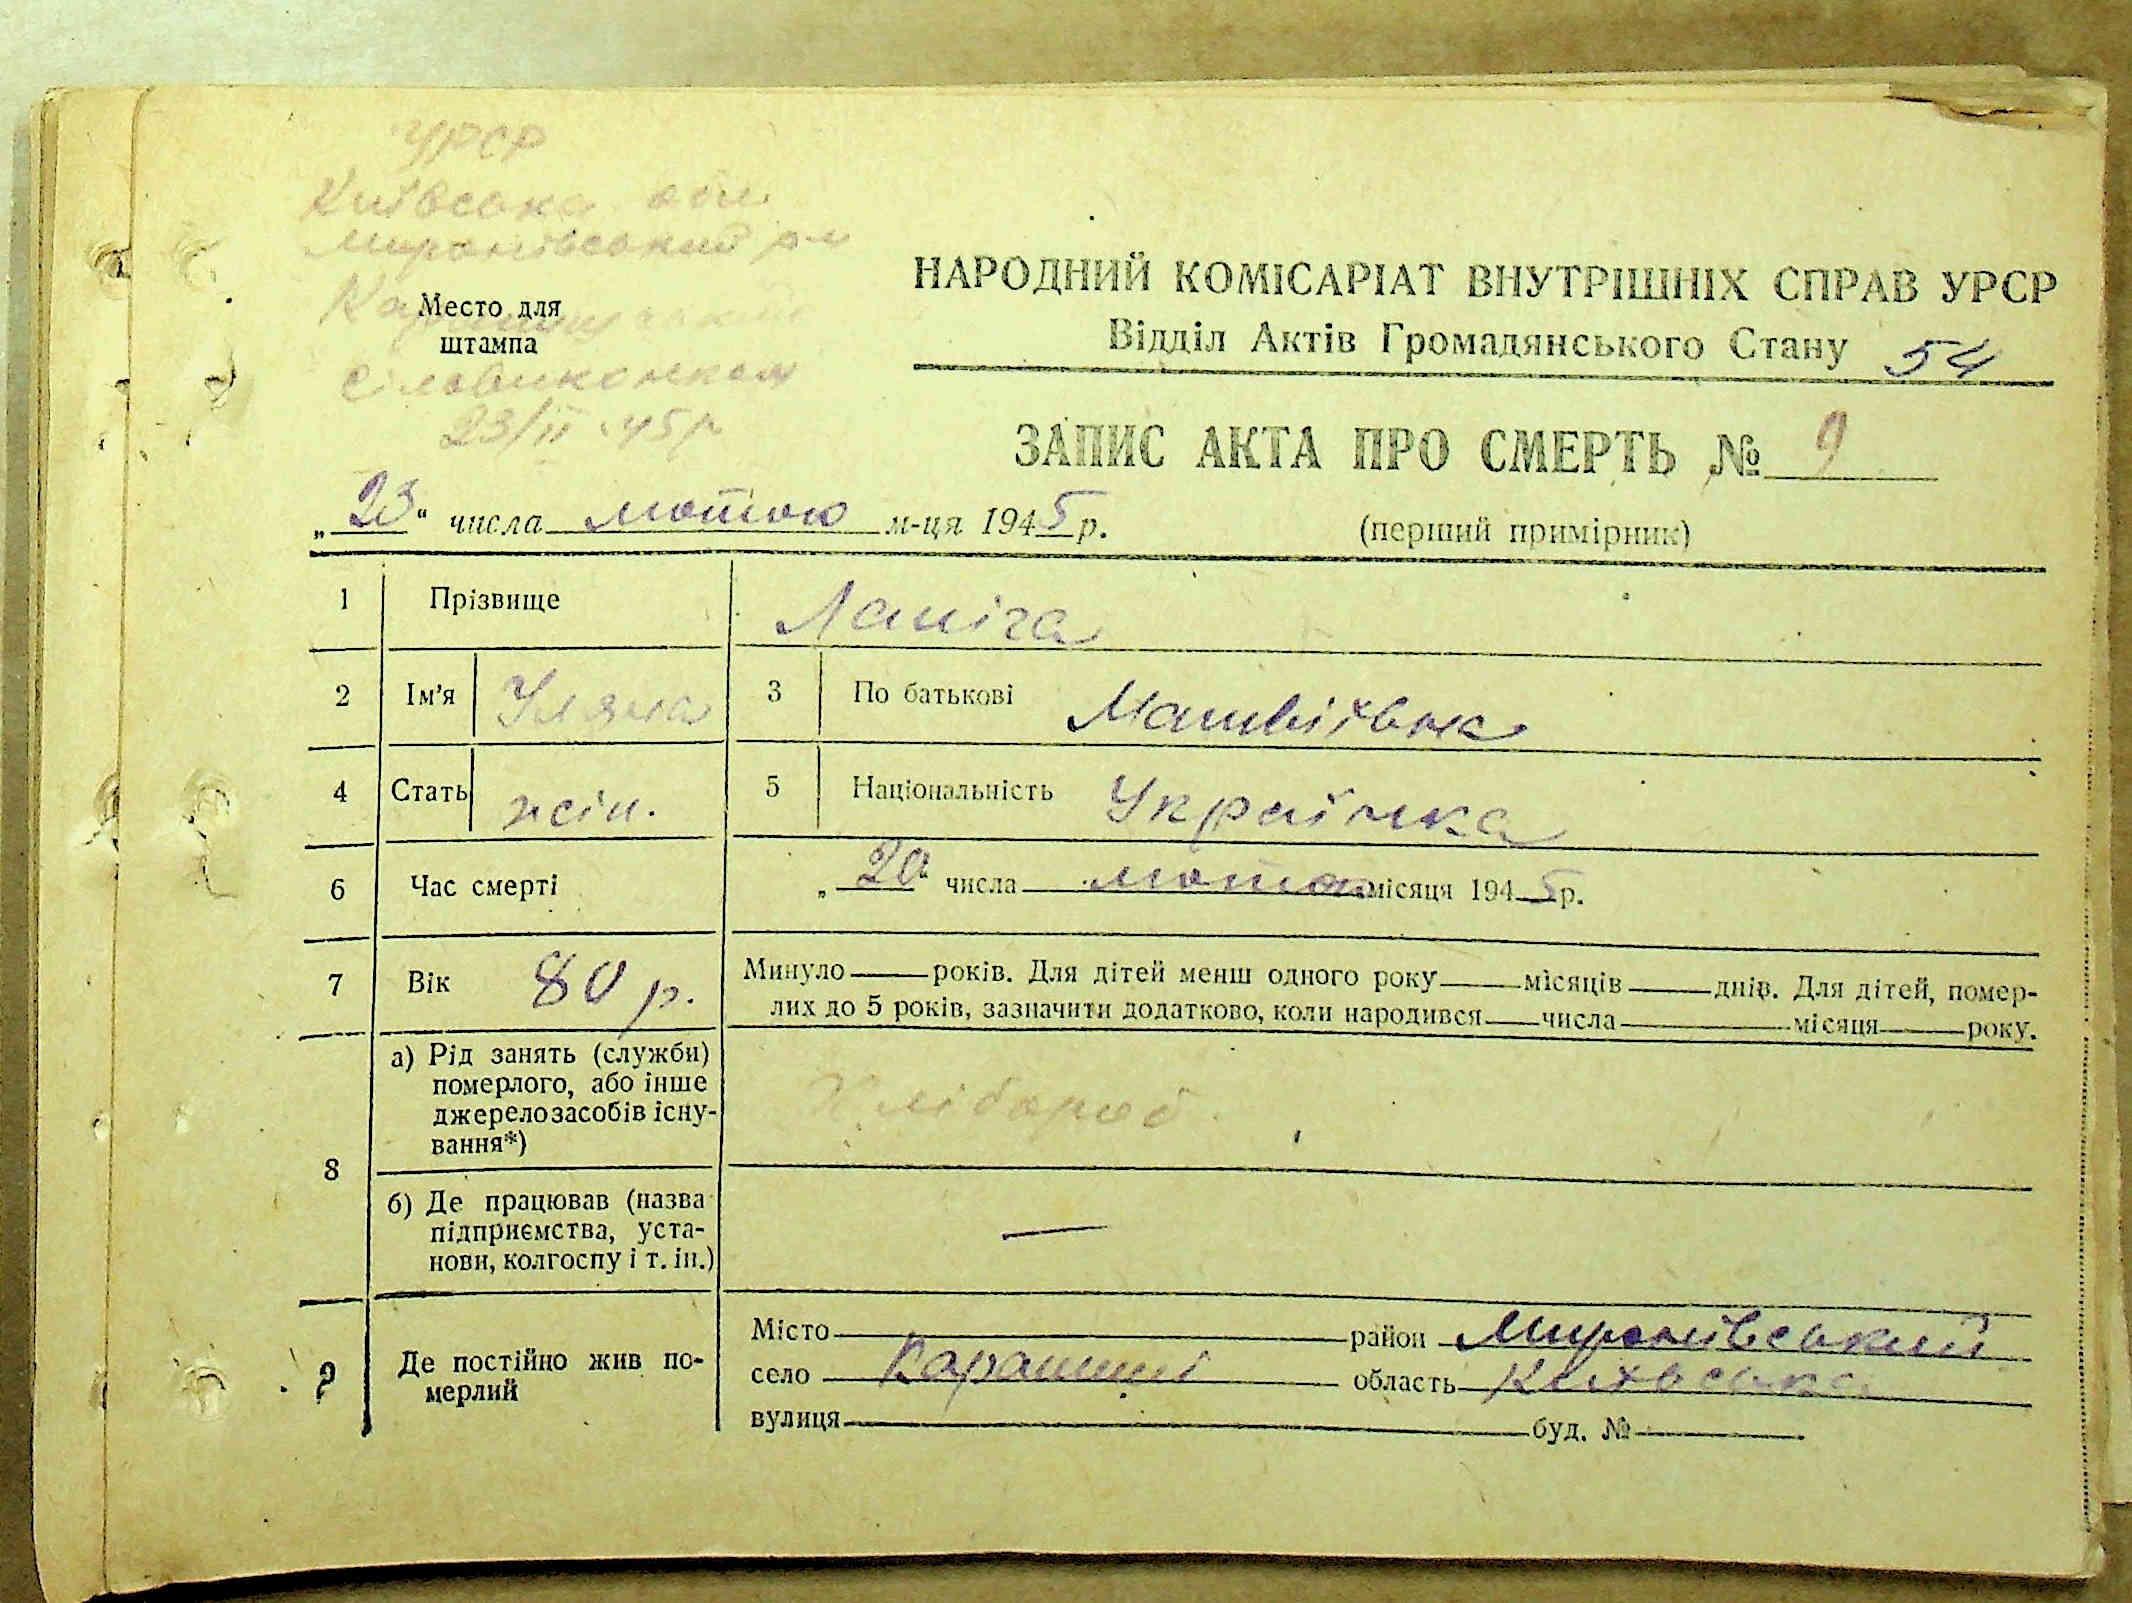 УРСР
Київська обл.
Миронівський р-н
Карапишський
Місто для
штампа
сільвиконком
23/II 45 р
НАРОДНИЙ КОМІСАРІАТ ВНУТРІШНІХ СПРАВ УРСР
Відділ Актів Громадянського Стану 54
ЗАПИС АКТА ПРО СМЕРТЬ № 9
„23“ числа лютого м-ця 1945 р.
(перший примірник)
1 Прізвище Лапіга
2 Ім'я Уляна 3 По батькові Матвіївна
4 Стать жін. 5 Національність Українка
6 Час смерті „20“ числа лютого місяця 1945 р.
7 Вік 80 р. Минуло років. Для дітей менш одного року місяців днів. Для дітей, помер-
лих до 5 років, зазначити додатково, коли народився числа місяця року.
8 а) Рід занять (служби)
померлого, або інше
джерело засобів існу-
вання*)
Хлібороб
б) Де працював (назва
підприємства, уста-
нови, колгоспу і т. ін.)
—
9 Де постійно жив по-
мерлий
Місто район Миронівський
село Карапиші область Київська
вулиця буд. №